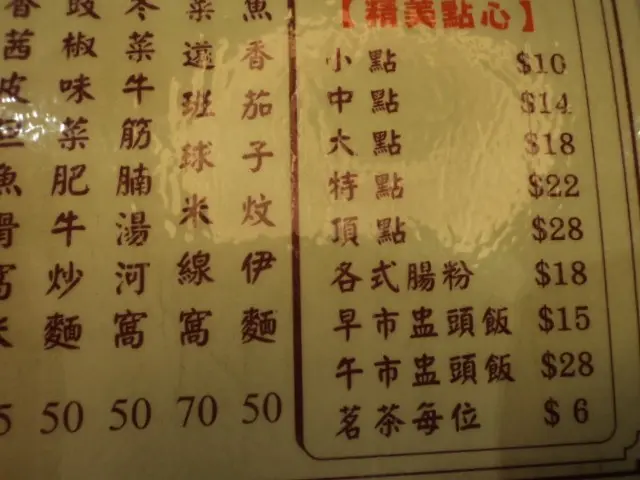 【精美點心】
小點 $10
中點 $14
大點 $18
特點 $22
頂點 $28
各式腸粉 $18
早市盅頭飯 $15
午市盅頭飯 $28
茗茶每位 $6
魚香茄子炆伊麵 50
菜遠班球米線窩 70
冬菜牛筋腩湯河窩 50
豉椒味菜肥牛炒麵 50
香茜皮旦魚滑窩